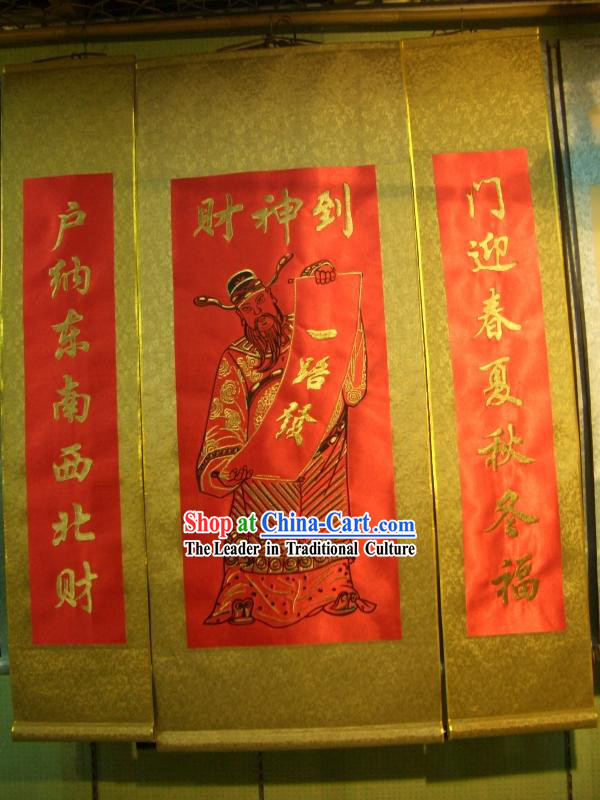 財神到
门迎春夏秋冬福
户纳东南西北财
一路發
Shop at China-Cart.com
The Leader in Traditional Culture